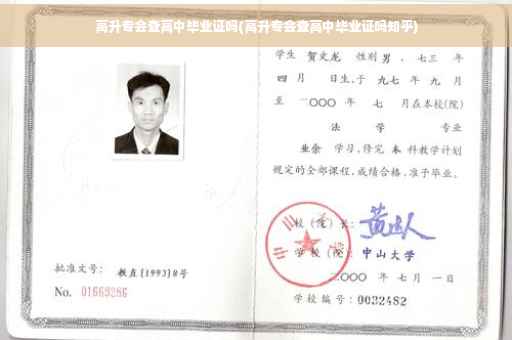 高升专会查高中毕业证吗(高升专会查高中毕业证吗知乎)
学生 贺文龙 性别 男 、七三 年
四 月 日生,于 九七 年 九 月
至 二〇〇〇 年 七 月在本校(院)
法 学 专业
业余 学习,修完 本 科教学计划
规定的全部课程,成绩合格,准予毕业。
校（院）长:
学 校（院）: 中山大学
二〇〇〇 年 七 月 一 日
批准文号: 教直[1993]8号
No. 01669286
学校编号: 0032482